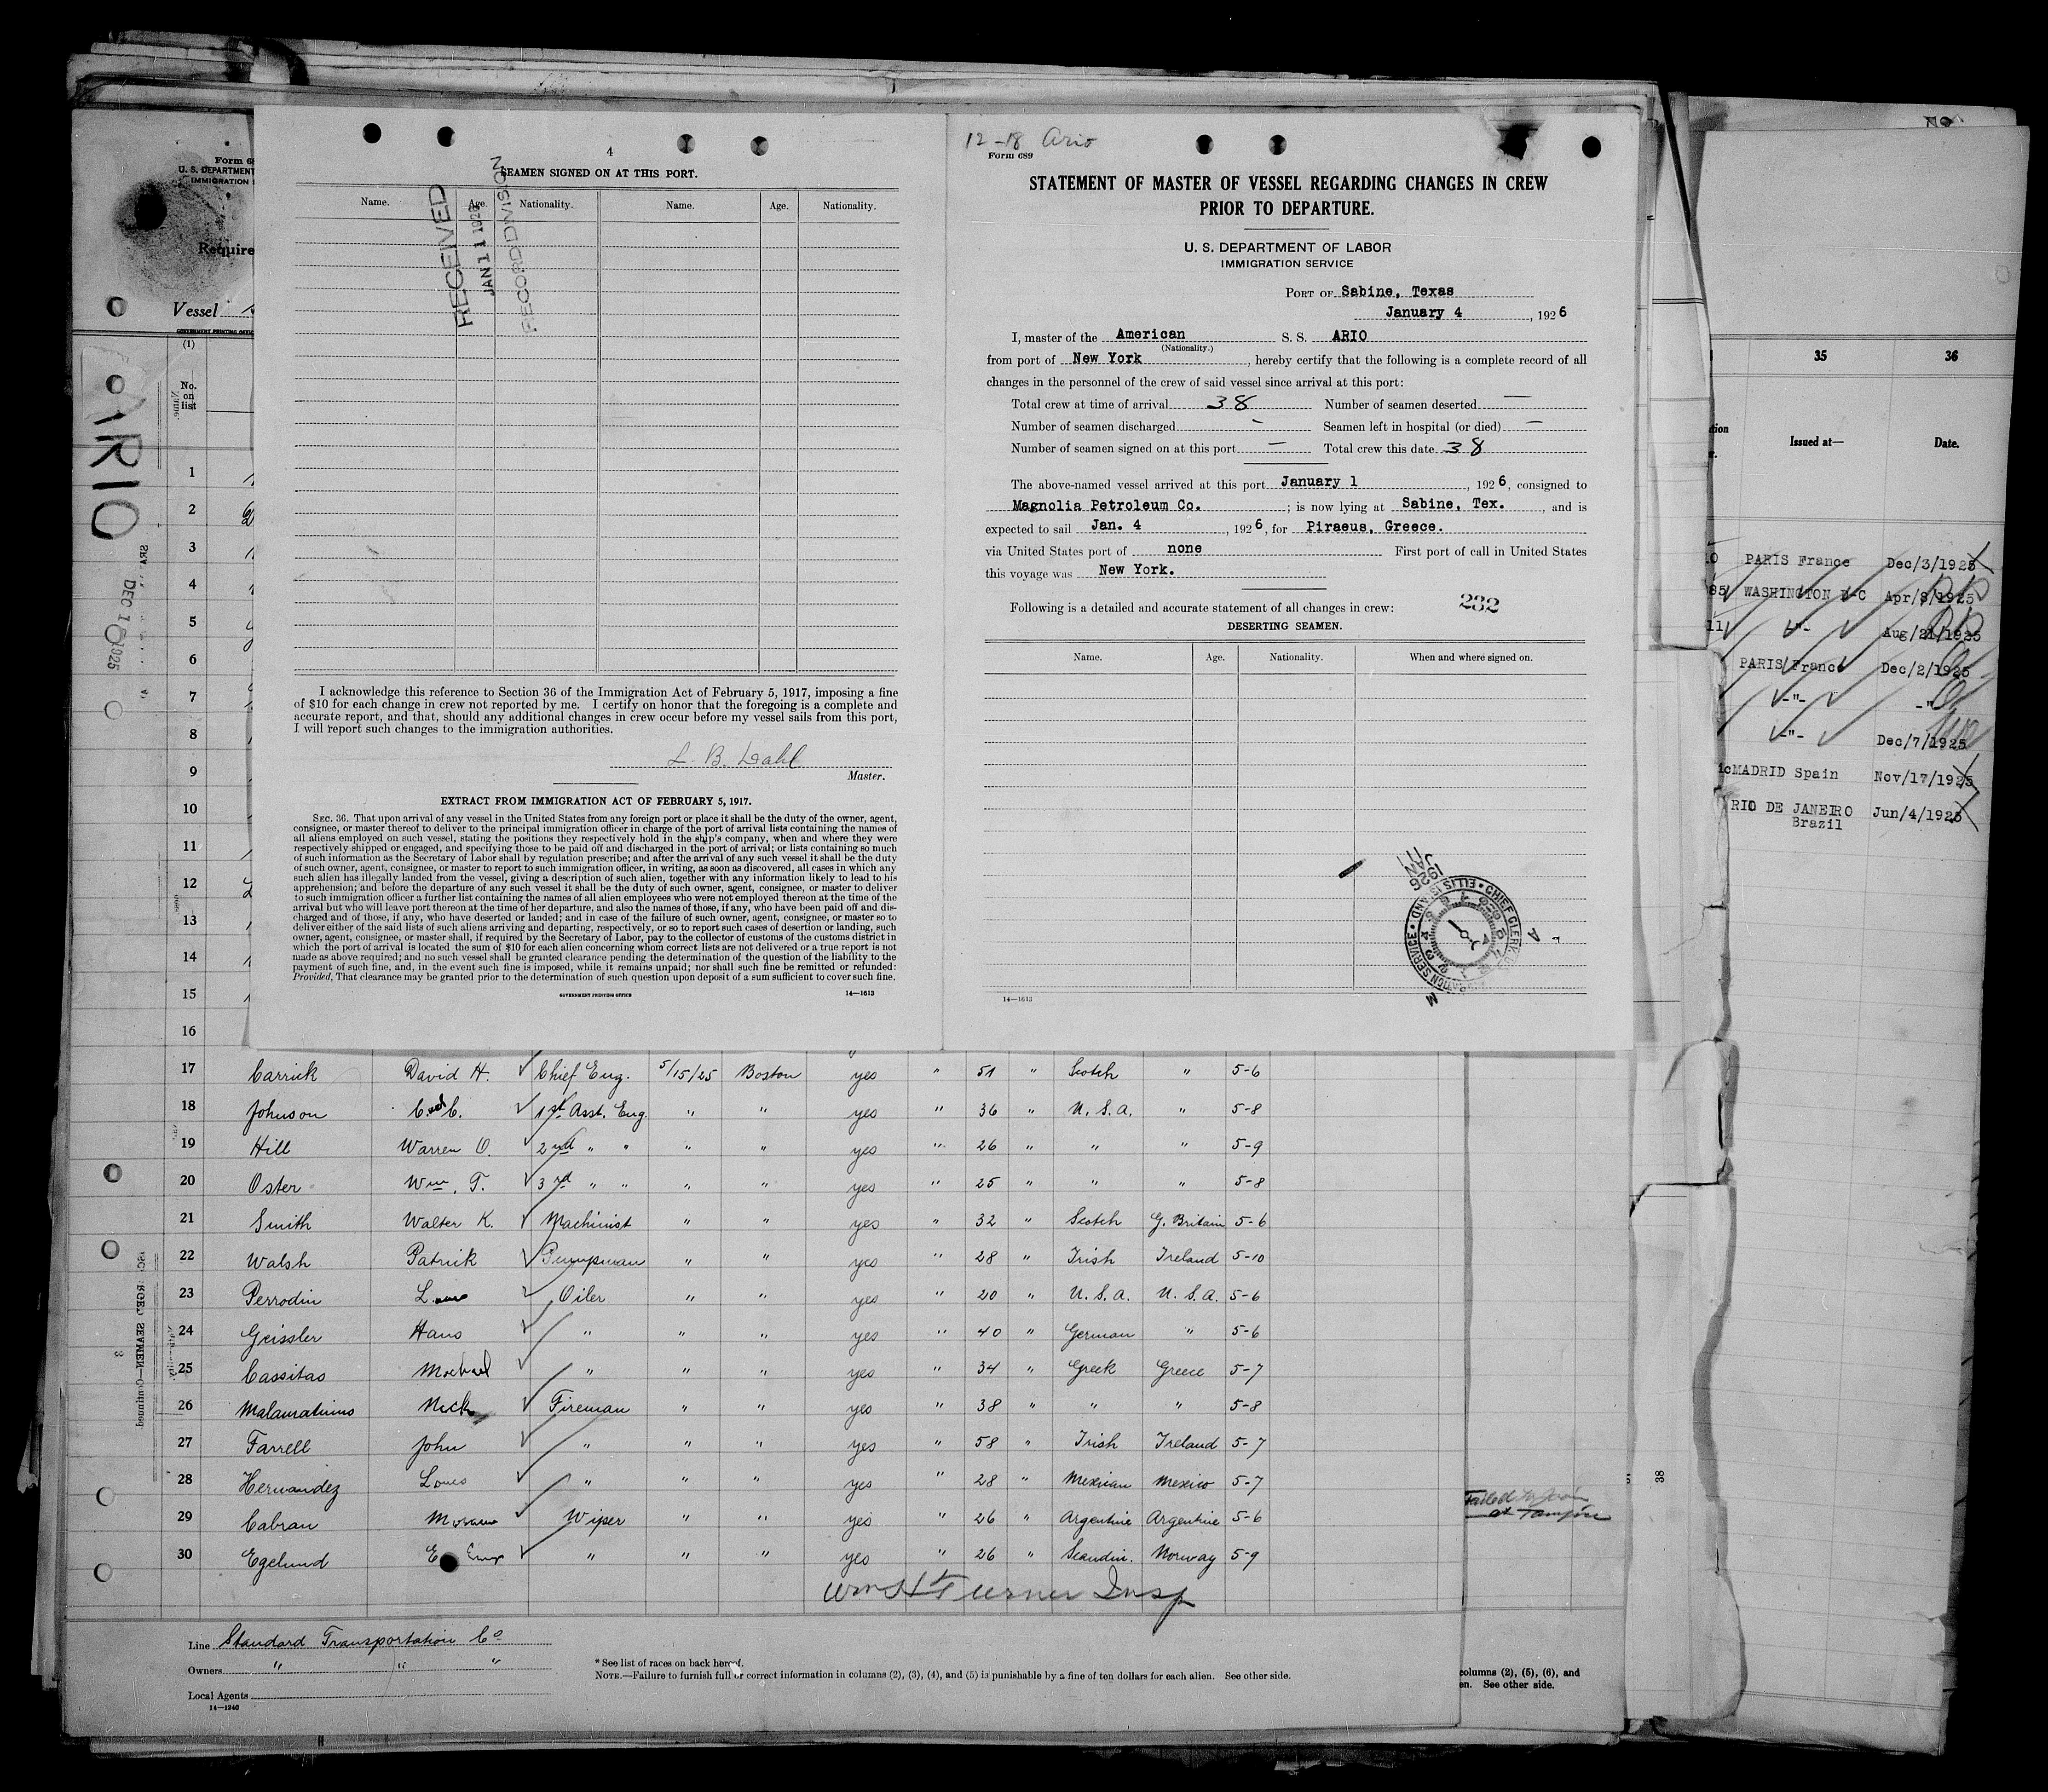 4
SEAMEN SIGNED ON AT THIS PORT.
Name. Age. Nationality. Name. Age. Nationality.
RECEIVED
JAN 11 1926
RECORD DIVISION
I acknowledge this reference to Section 36 of the Immigration Act of February 5, 1917, imposing a fine
of $10 for each change in crew not reported by me. I certify on honor that the foregoing is a complete and
accurate report, and that, should any additional changes in crew occur before my vessel sails from this port,
I will report such changes to the immigration authorities.
L. B. Dahl
Master.
EXTRACT FROM IMMIGRATION ACT OF FEBRUARY 5, 1917.
SEC. 36. That upon arrival of any vessel in the United States from any foreign port or place it shall be the duty of the owner, agent,
consignee, or master thereof to deliver to the principal immigration officer in charge of the port of arrival lists containing the names of
all aliens employed on such vessel, stating the positions they respectively hold in the ship's company, when and where they were
respectively shipped or engaged, and specifying those to be paid off and discharged in the port of arrival; or lists containing so much
of such information as the Secretary of Labor shall by regulation prescribe; and after the arrival of any such vessel it shall be the duty
of such owner, agent, consignee, or master to report to such immigration officer, in writing, as soon as discovered, all cases in which any
such alien has illegally landed from the vessel, giving a description of such alien, together with any information likely to lead to his
apprehension; and before the departure of any such vessel it shall be the duty of such owner, agent, consignee, or master to deliver
to such immigration officer a further list containing the names of all alien employees who were not employed thereon at the time of the
arrival but who will leave port thereon at the time of her departure, and also the names of those, if any, who have been paid off and dis-
charged and of those, if any, who have deserted or landed; and in case of the failure of such owner, agent, consignee, or master so to
deliver either of the said lists of such aliens arriving and departing, respectively, or so to report such cases of desertion or landing, such
owner, agent, consignee, or master shall, if required by the Secretary of Labor, pay to the collector of customs of the customs district in
which the port of arrival is located the sum of $10 for each alien concerning whom correct lists are not delivered or a true report is not
made as above required; and no such vessel shall be granted clearance pending the determination of the question of the liability to the
payment of such fine, and, in the event such fine is imposed, while it remains unpaid; nor shall such fine be remitted or refunded:
Provided, That clearance may be granted prior to the determination of such question upon deposit of a sum sufficient to cover such fine.
GOVERNMENT PRINTING OFFICE 14—1613
12-18 Ario
Form 689
STATEMENT OF MASTER OF VESSEL REGARDING CHANGES IN CREW
PRIOR TO DEPARTURE.
U. S. DEPARTMENT OF LABOR
IMMIGRATION SERVICE
PORT OF Sabine, Texas
January 4, 1926
I, master of the American S. S. ARIO
(Nationality.)
from port of New York, hereby certify that the following is a complete record of all
changes in the personnel of the crew of said vessel since arrival at this port:
Total crew at time of arrival 38 Number of seamen deserted —
Number of seamen discharged - Seamen left in hospital (or died) —
Number of seamen signed on at this port — Total crew this date 38
The above-named vessel arrived at this port January 1, 1926, consigned to
Magnolia Petroleum Co.; is now lying at Sabine, Tex., and is
expected to sail Jan. 4, 1926, for Piraeus, Greece.
via United States port of none First port of call in United States
this voyage was New York.
Following is a detailed and accurate statement of all changes in crew: 232
DESERTING SEAMEN.
Name. Age. Nationality. When and where signed on.
1926
JAN 11
CHIEF CLERK
ELLIS ISLAND
14—1613
Form 68
U. S. DEPARTMENT
IMMIGRATION
Require
Vessel
GOVERNMENT PRINTING OFFIC
(1)
No.
on
list
ARIO
DEC 18 1925
1
2
3
4
5
6
7
8
9
10
11
12
13
14
15
16
17 Carrick David H. Chief Eng. 5/15/25 Boston yes " 51 " Scotch " 5-6
18 Johnson C. 1st Asst. Eng. " " yes " 36 " U. S. A. " 5-8
19 Hill Warren O. 2nd " " " " yes " 26 " " " 5-9
20 Oster Wm. T. 3rd " " " " yes " 25 " " " 5-8
21 Smith Walter K. Machinist " " yes " 32 " Scotch G. Britain 5-6
22 Walsh Patrick Pumpman " " yes " 28 " Irish Ireland 5-10
23 Perrodin Oiler " " yes " 20 " U. S. A. U. S. A. 5-6
24 Geissler Hans " " " yes " 40 " German " 5-6
25 Cassitas Michael " " " yes " 34 " Greek Greece 5-7
26 Malamatinos Nick Fireman " " yes " 38 " " " 5-8
27 Farrell John " " " yes " 58 " Irish Ireland 5-7
28 Hernandez Louis " " " yes " 28 " Mexican Mexico 5-7
29 Cabran Wiper " " yes " 26 " Argentine Argentine 5-6
30 Egelund " " " yes " 26 " Scandin. Norway 5-9
Wm H Turner Insp
Line Standard Transportation Co
Owners " " "
Local Agents
14—1240
* See list of races on back hereof.
NOTE.—Failure to furnish full or correct information in columns (2), (3), (4), and (5) is punishable by a fine of ten dollars for each alien. See other side.
Failed to Join
at Tampico
columns (2), (5), (6), and
en. See other side.
38
35 36
Issued at— Date.
PARIS France Dec/3/1925
WASHINGTON D-C Apr/8/1925
-"- Aug/21/1925
PARIS France Dec/2/1925
-"- -"-
-"- Dec/7/1925
MADRID Spain Nov/17/1925
RIO DE JANEIRO Jun/4/1925
Brazil